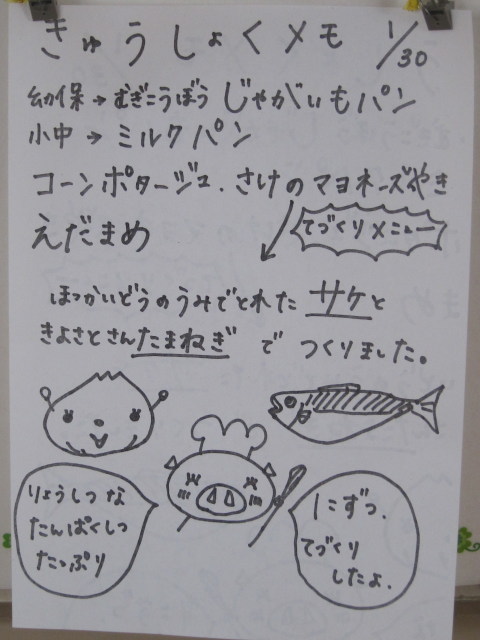 きゅうしょくメモ 1/30
幼保→むぎこうぼうじゃがいもパン
小中→ミルクパン
コーンポタージュ．さけのマヨネーズやき
えだまめ
てづくりメニュー
ほっかいどうのうみでとれたサケと
きよさとさんたまねぎでつくりました。
りょうしつな
たんぱくしつ
たっぷり
1こずつ、
てづくり
したよ．